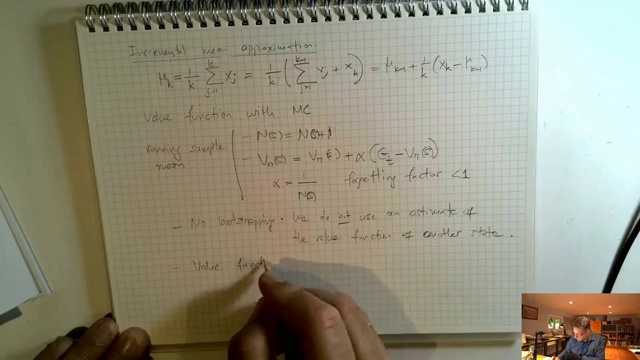 Incremental mean approximation:
μ_k = 1/k ∑_{j=1}^{k} x_j = 1/k ( ∑_{j=1}^{k-1} x_j + x_k ) = μ_{k-1} + 1/k (x_k - μ_{k-1})
Value function with MC
running sample mean
- N(s) = N(s)+1
- V_π(s) = V_π(s) + α (G_t - V_π(s))
α = 1/N(s) forgetting factor < 1
- No bootstrapping: We do not use an estimate of
the value function of another state.
- Value